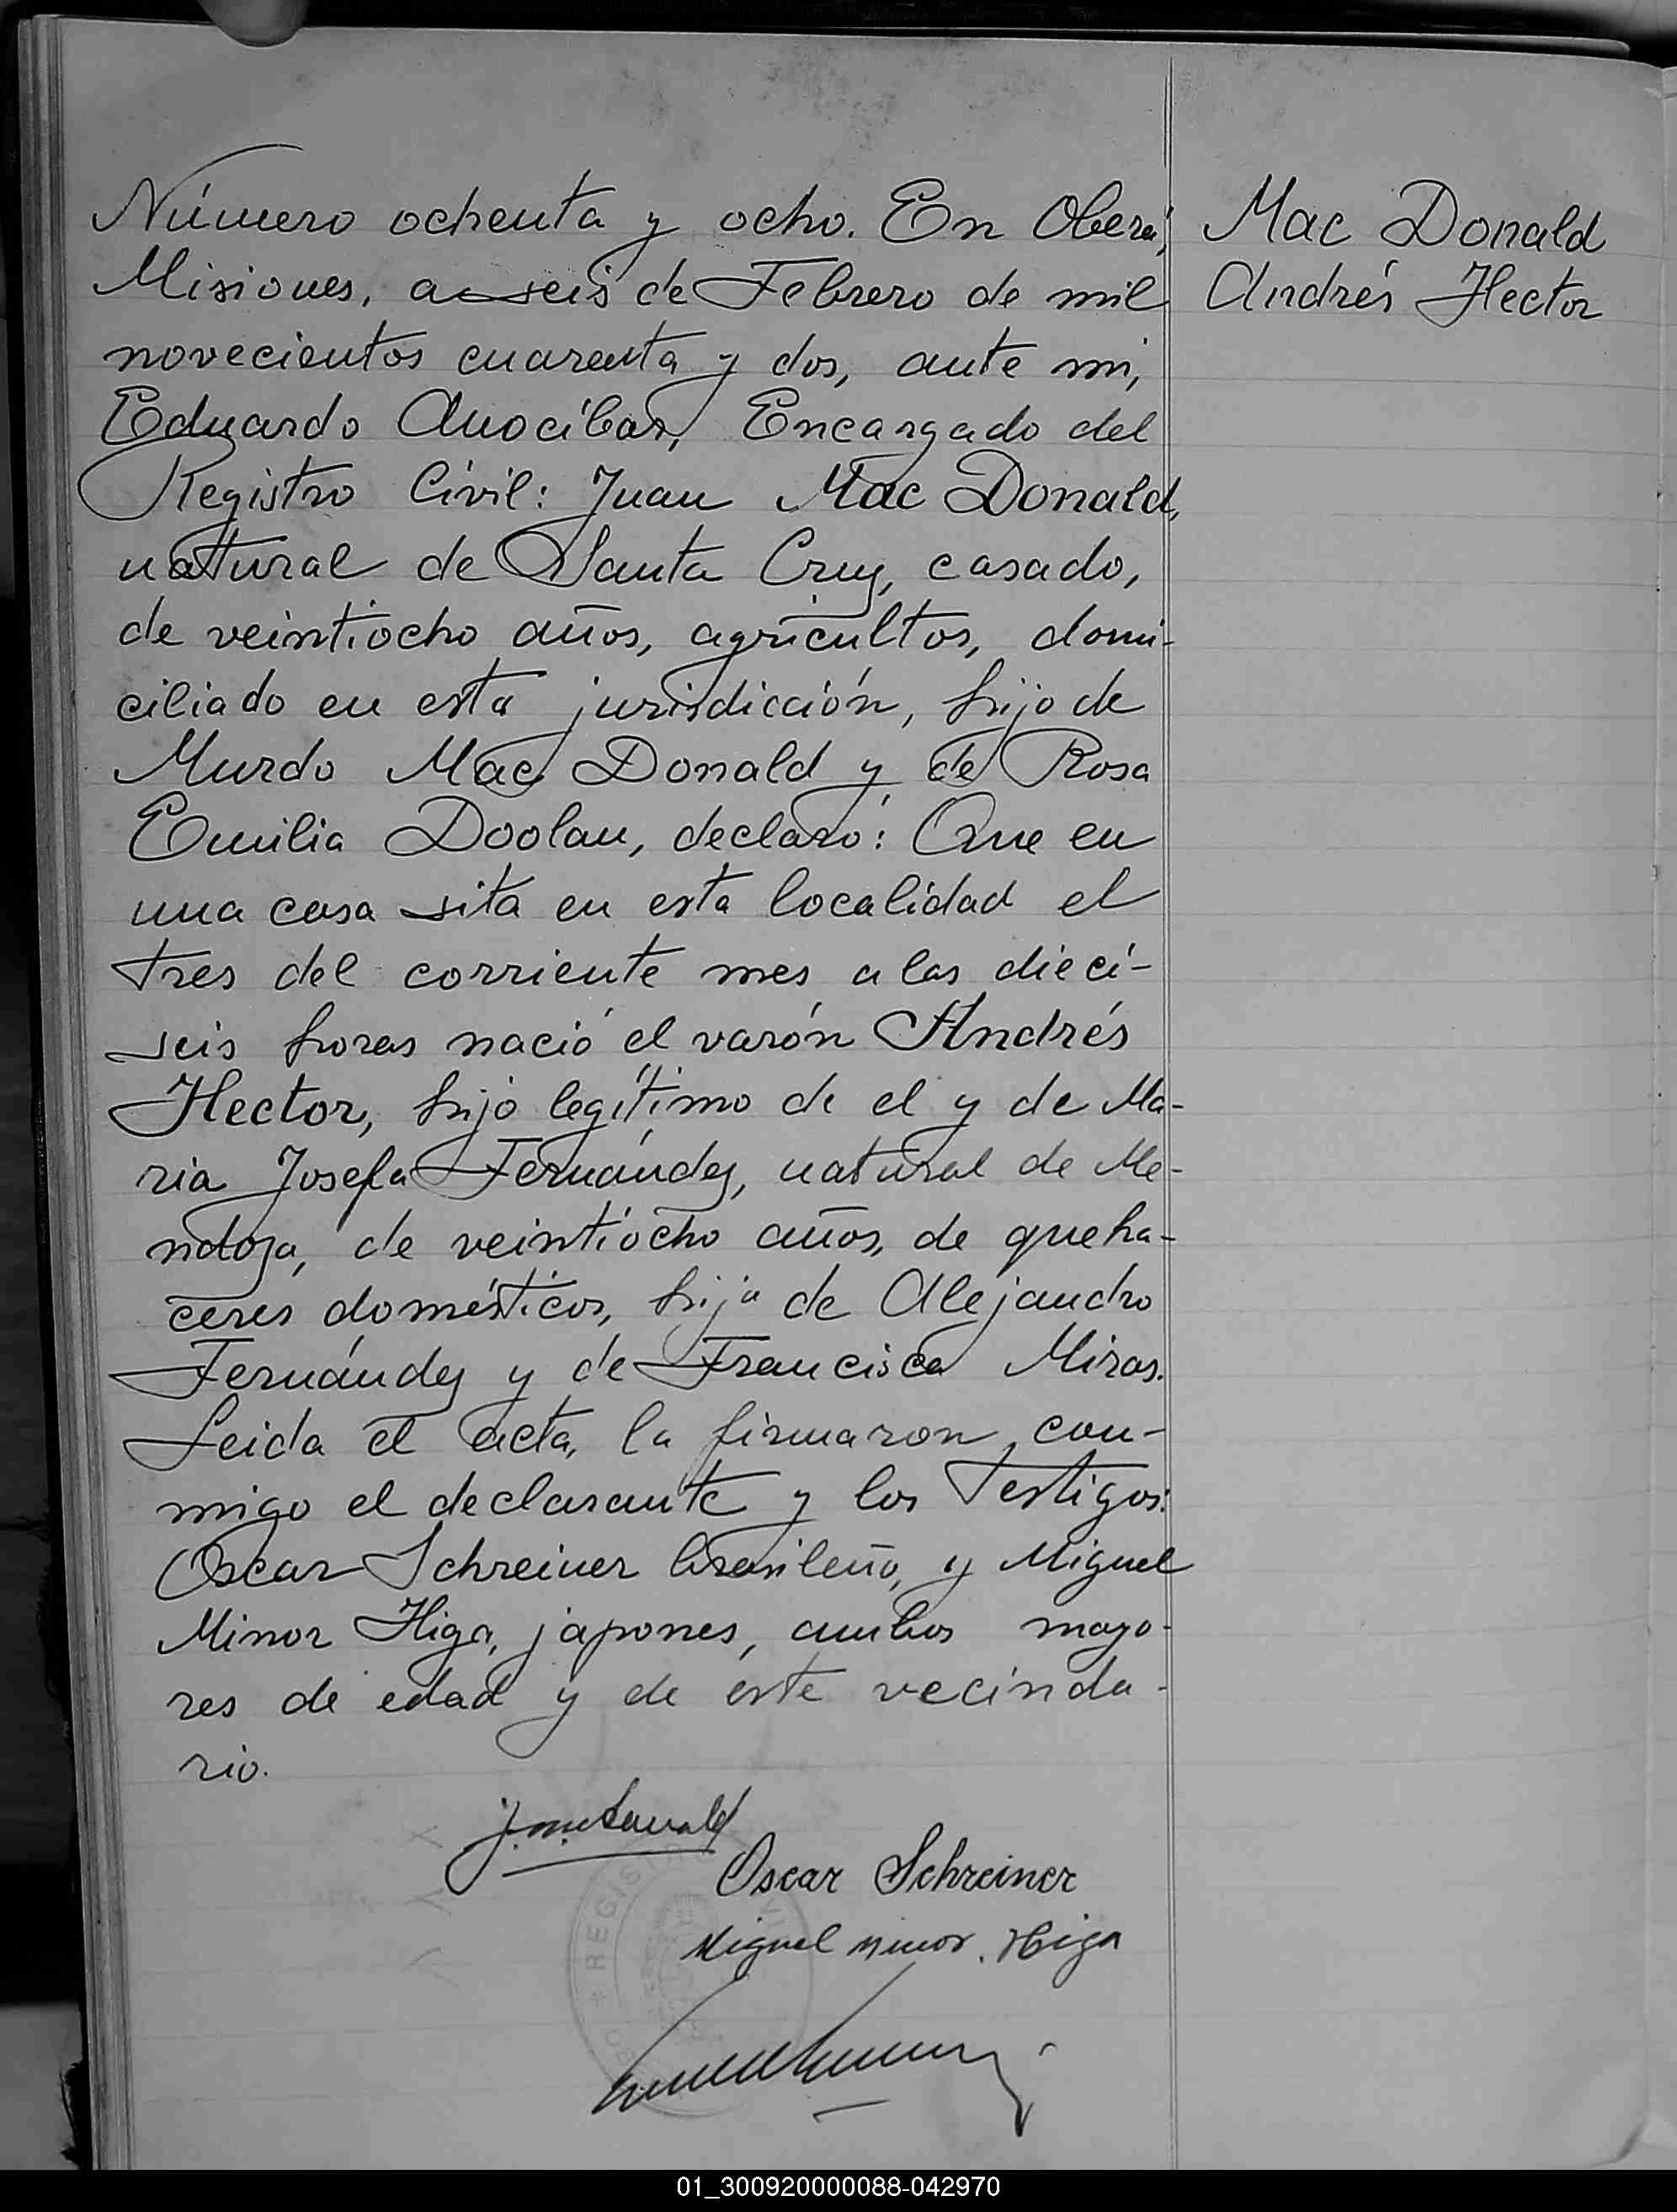 Número ochenta y ocho. En Oberá,
Misiones, a seis de Febrero de mil
novecientos cuarenta y dos, ante mi,
Eduardo Anocíbar, Encargado del
Registro Civil: Juan Mac Donald,
natural de Santa Cruz, casado,
de veintiocho años, agricultor, domi-
ciliado en esta jurisdicción, hijo de
Murdo Mac Donald y de Rosa
Emilia Doolan, declaró: Que en
una casa sita en esta localidad el
tres del corriente mes a las dieci-
seis horas nació el varón Andrés
Hector, hijo legítimo de el y de Ma-
ria Josefa Fernández, natural de Me-
ndoza, de veintiocho años, de queha-
ceres domésticos, hija de Alejandro
Fernández y de Francisca Miras.
Leida el acta, la firmaron con-
migo el declarante y los testigos:
Oscar Schreiner brasileño, y Miguel
Minor Higa, japones, ambos mayo-
res de edad y de este vecinda-
rio.
Mac Donald
Andrés Hector
Oscar Schreiner
Miguel Minor. Higa
REGIS
01_300920000088-042970